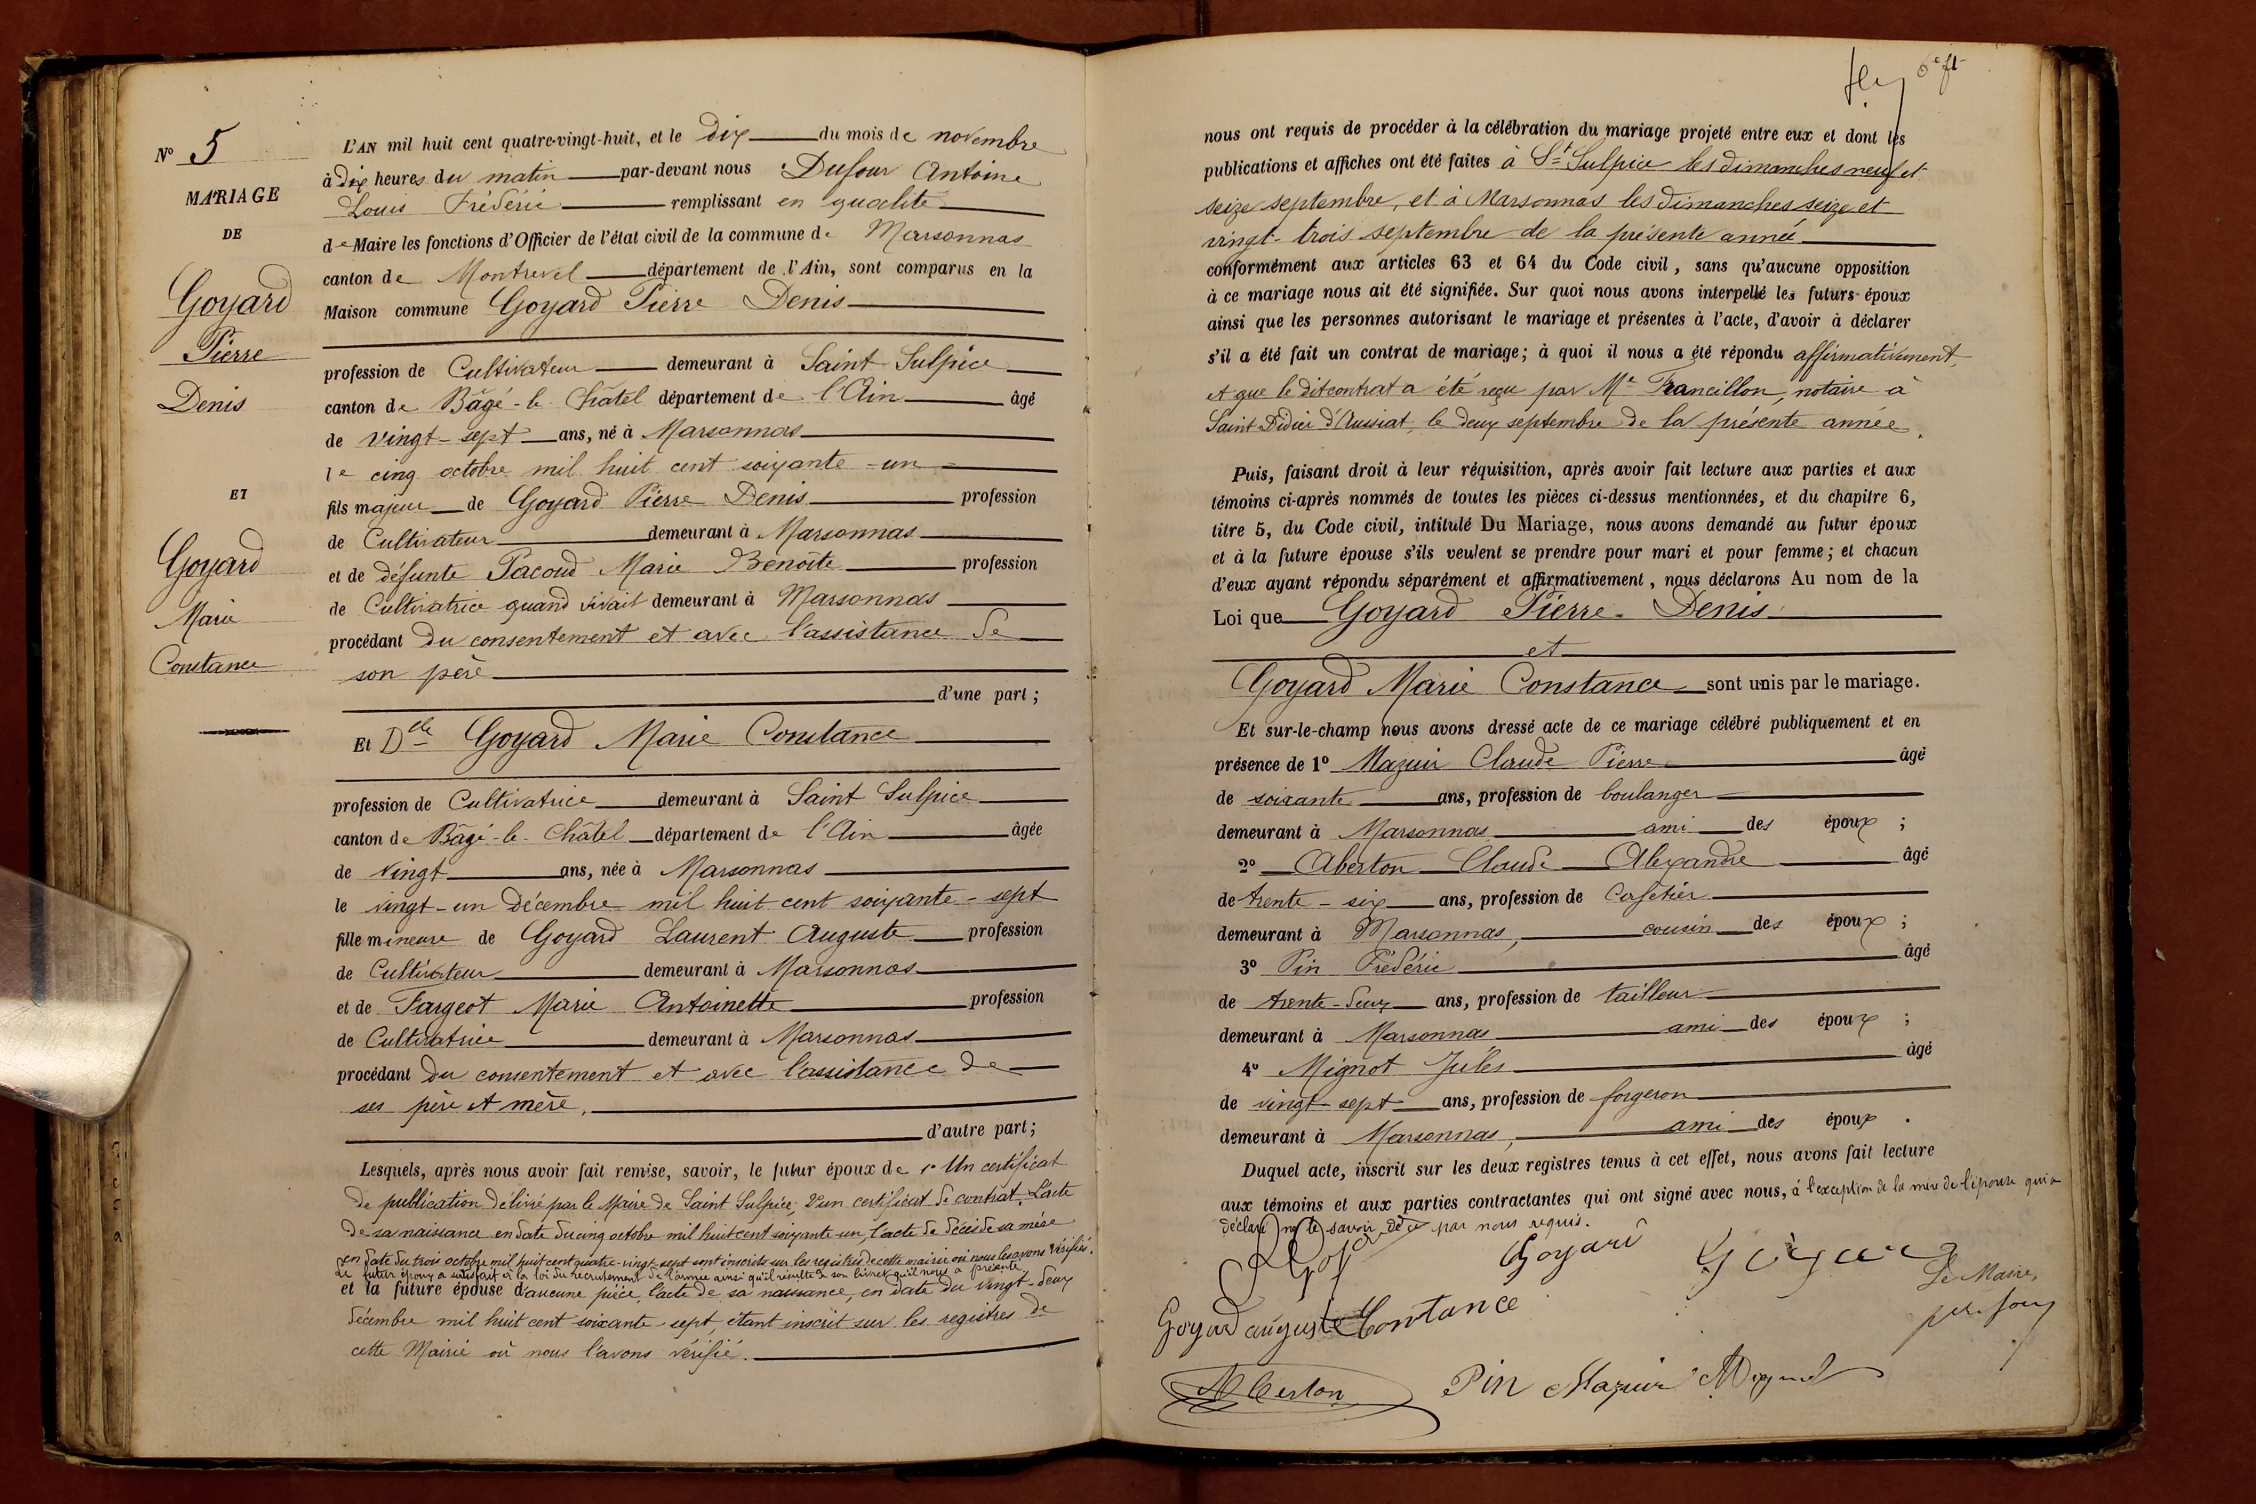 N° 5
MARIAGE
DE
Goyard
Pierre
Denis
ET
Goyard
Marie
Constance
L'AN mil huit cent quatre-vingt-huit, et le dix du mois de novembre
à dix heures du matin par-devant nous Dufour Antoine
Louis Frédéric remplissant en qualité
de Maire les fonctions d'Officier de l'état civil de la commune de Marsonnas
canton de Montrevel département de l'Ain, sont comparus en la
Maison commune Goyard Pierre Denis
profession de Cultivateur demeurant à Saint Sulpice
canton de Bâgé-le-Châtel département de l'Ain âgé
de vingt-sept ans, né à Marsonnas
le cinq octobre mil huit cent soixante-un
fils majeur de Goyard Pierre Denis profession
de Cultivateur demeurant à Marsonnas
et de défunte Pacoud Marie Benoîte profession
de Cultivatrice quand vivait demeurant à Marsonnas
procédant du consentement et avec l'assistance de
son père
d'une part ;
Et Dlle Goyard Marie Constance
profession de Cultivatrice demeurant à Saint Sulpice
canton de Bâgé-le-Châtel département de l'Ain âgée
de vingt ans, née à Marsonnas
le vingt-un décembre mil huit cent soixante-sept
fille mineure de Goyard Laurent Auguste profession
de Cultivateur demeurant à Marsonnas
et de Fargeot Marie Antoinette profession
de Cultivatrice demeurant à Marsonnas
procédant du consentement et avec l'assistance de
ses père et mère.
d'autre part ;
Lesquels, après nous avoir fait remise, savoir, le futur époux de 1° Un certificat
de publication délivré par le Maire de Saint Sulpice, d'un certificat de contrat. L'acte
de sa naissance en date du cinq octobre mil huit cent soixante-un, l'acte de décès de sa mère
en date du trois octobre mil huit cent quatre-vingt-sept sont inscrits sur les registres de cette mairie où nous les avons vérifiés.
Le futur époux a satisfait à la loi du recrutement de l'armée ainsi qu'il résulte de son livret qu'il nous a présenté
et la future épouse d'aucune pièce, l'acte de sa naissance, en date du vingt-deux
décembre mil huit cent soixante-sept, étant inscrit sur les registres de
cette Mairie où nous l'avons vérifié.
6e ft
nous ont requis de procéder à la célébration du mariage projeté entre eux et dont les
publications et affiches ont été faites à St Sulpice les dimanches neuf et
seize septembre, et à Marsonnas les dimanches seize et
vingt-trois septembre de la présente année
conformément aux articles 63 et 64 du Code civil, sans qu'aucune opposition
à ce mariage nous ait été signifiée. Sur quoi nous avons interpellé les futurs époux
ainsi que les personnes autorisant le mariage et présentes à l'acte, d'avoir à déclarer
s'il a été fait un contrat de mariage ; à quoi il nous a été répondu affirmativement,
et que le dit contrat a été reçu par Me Francillon, notaire à
Saint Didier d'Aussiat, le deux septembre de la présente année.
Puis, faisant droit à leur réquisition, après avoir fait lecture aux parties et aux
témoins ci-après nommés de toutes les pièces ci-dessus mentionnées, et du chapitre 6,
titre 5, du Code civil, intitulé Du Mariage, nous avons demandé au futur époux
et à la future épouse s'ils veulent se prendre pour mari et pour femme ; et chacun
d'eux ayant répondu séparément et affirmativement, nous déclarons Au nom de la
Loi que Goyard Pierre Denis
et
Goyard Marie Constance sont unis par le mariage.
Et sur-le-champ nous avons dressé acte de ce mariage célébré publiquement et en
présence de 1° Mazuir Claude Pierre âgé
de soixante ans, profession de boulanger
demeurant à Marsonnas ami des époux ;
2° Aberton Claude Alexandre âgé
de trente-six ans, profession de Cafetier
demeurant à Marsonnas, cousin des époux ;
3° Pin Frédéric âgé
de trente-deux ans, profession de tailleur
demeurant à Marsonnas ami des époux ;
4° Mignot Jules âgé
de vingt-sept ans, profession de forgeron
demeurant à Marsonnas, ami des époux.
Duquel acte, inscrit sur les deux registres tenus à cet effet, nous avons fait lecture
aux témoins et aux parties contractantes qui ont signé avec nous, à l'exception de la mère de l'épouse qui a
déclaré ne le savoir de ce par nous requis.
Goyard
Goyard
Le Maire,
Goyard auguste Constance
Aberton Pin Mazuir Mignot